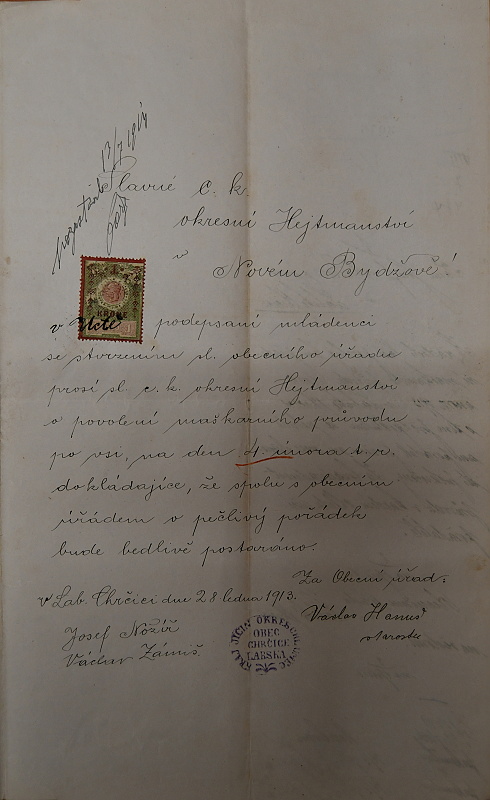 13/7 1914
Slavné c. k.
okresní Hejtmanství
v
Novém Bydžově!
KRONE
v Uctě podepsaní mládenci
se stvrzením sl. obecního úřadu
prosí sl. c. k. okresní Hejtmanství
o povolení maškarního průvodu
po vsi, na den 4. února t. r.
dokládajíce, že spolu s obecním
úřádem o pečlivý pořádek
bude bedlivě postaráno.
Za Obecní úřad.
v Lab. Chrčici dne 28 ledna 1913.
Václav Hanuš
starosta
Josef Nožíř
Václav Zámiš
OBEC
CHRČICE
LABSKA